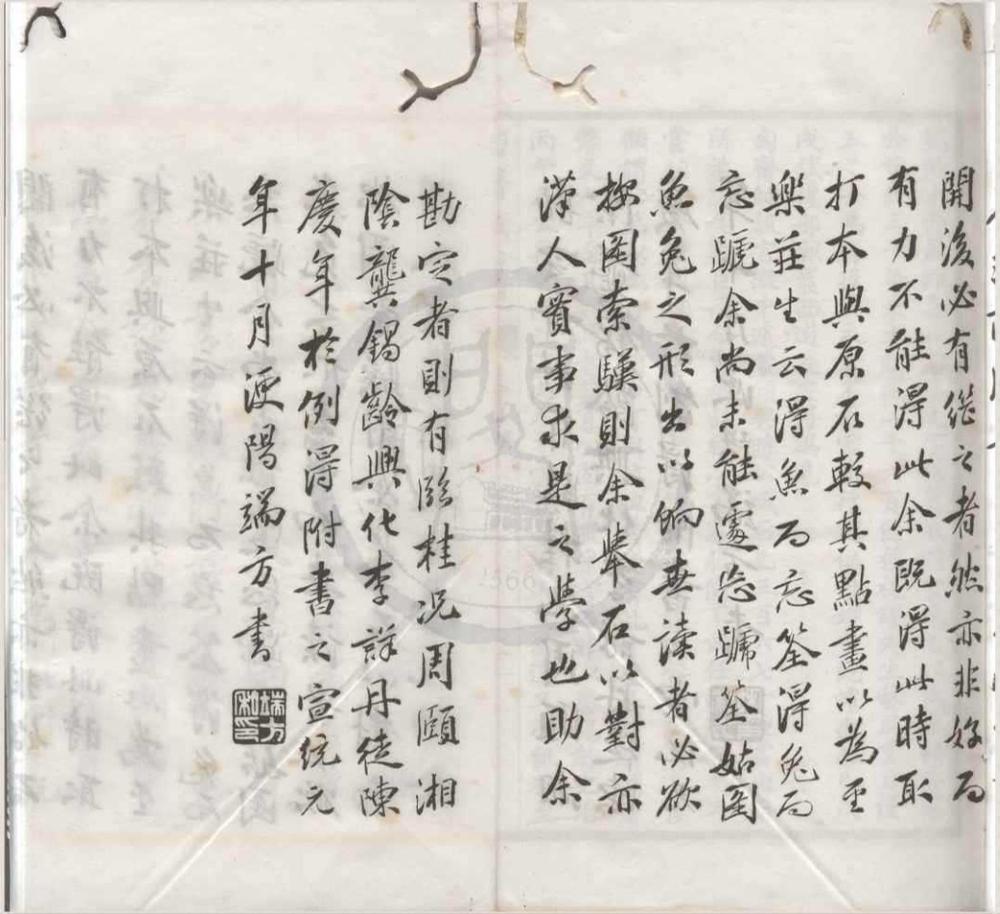 開後必有從之者然亦非好而
有力不能得此余既得此時取
打本與原石較其點畫以為至
樂莊生云得魚而忘筌得兔而
忘蹏余尚未能遽忘蹏筌姑図
魚兔之形出以餉世讀者必欲
按圖索驥則余舉石以對亦
漢人實事求是之學也助余
勘定者則有臨桂况周頤湘
陰龔錫齡興化李詳丹徒陳
慶年於例得附書之宣統元
年十月浭陽端方書
端方
私印
1566